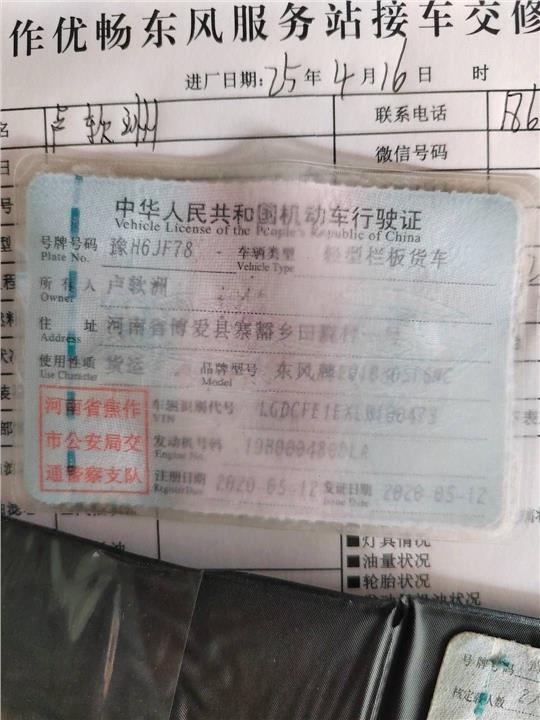 作优畅东风服务站接车交修
进厂日期:25年4月16日 时
名 卢软洲 联系电话
日 微信号码
号
中华人民共和国机动车行驶证
Vehicle License of the People's Republic of China
号牌号码 豫H6JF78 车辆类型 轻型栏板货车
Plate No. Vehicle Type
所有人 卢软洲
Owner
住址 河南省博爱县寨豁乡田
Address
使用性质 货运 品牌型号 东风牌
Use Character Model
河南省焦作 车辆识别代号
VIN
市公安局交 发动机号码
Engine No.
通警察支队 注册日期 2020-05-12 发证日期 2020-05-12
Register Date Issue Date
■灯具情况
■油量状况
■轮胎状况
号牌号码
核定载人数